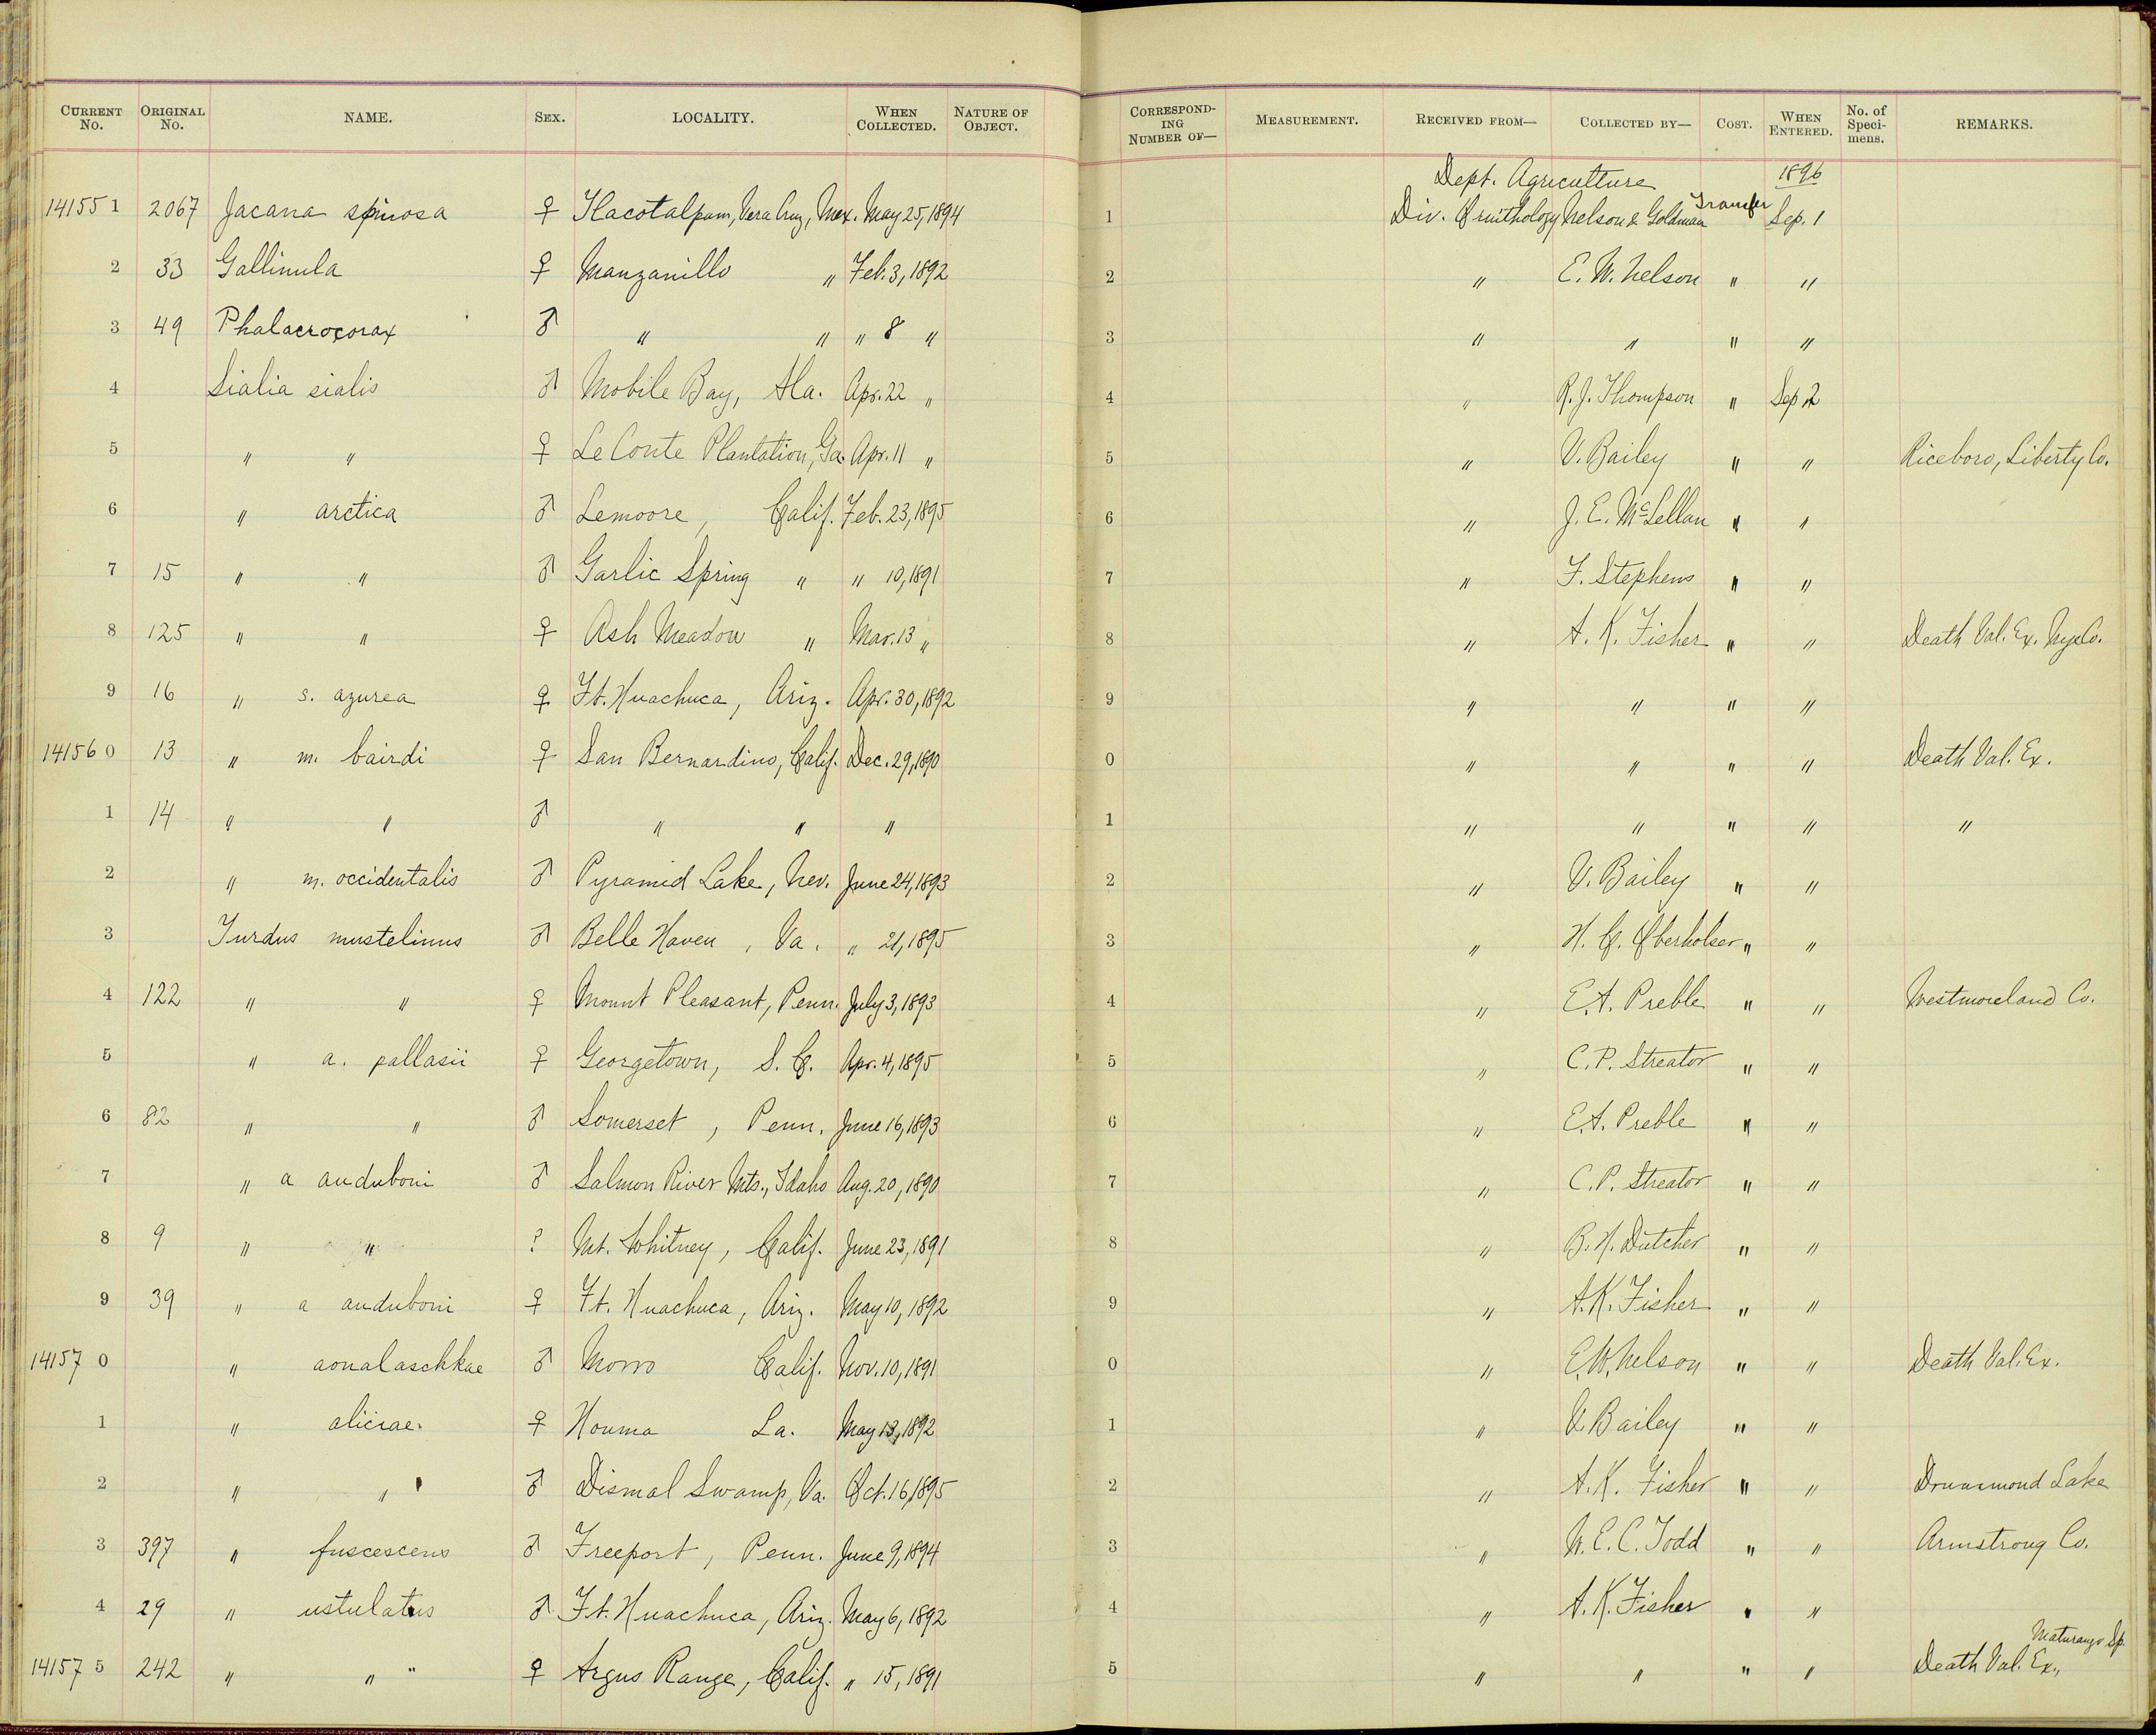 CURRENT No. ORIGINAL No. NAME. SEX. LOCALITY. WHEN COLLECTED. NATURE OF OBJECT. CORRESPONDING NUMBER OF— MEASUREMENT. RECEIVED FROM— COLLECTED BY— COST. WHEN ENTERED. No. of Specimens. REMARKS.
Dept. Agriculture 1896
14155 1 2067 Jacana spinosa ♀ Tlacotalpam, Vera Cruz, Mex. May 25, 1894 1 Div. Ornithology Nelson & Goldman Transfer Sep. 1
2 33 Gallinula ♀ Manzanillo " Feb. 3, 1892 2 " E. W. Nelson " "
3 49 Phalacrocorax ♂ " " " 8 " 3 " " " "
4 Sialia sialis ♂ Mobile Bay, Ala. Apr. 22 " 4 " R. J. Thompson " Sep 2
5 " " ♀ Le Conte Plantation, Ga. Apr. 11 " 5 " V. Bailey " " Riceboro, Liberty Co.
6 " arctica ♂ Lemoore, Calif. Feb. 23, 1895 6 " J. E. McLellan " "
7 15 " " ♂ Garlic Spring " " 10, 1891 7 " F. Stephens " "
8 125 " " ♀ Ash Meadow " Mar. 13 " 8 " A. K. Fisher " " Death Val. Ex. Nye Co.
9 16 " s. azurea ♀ Ft. Huachuca, Ariz. Apr. 30, 1892 9 " " " "
14156 0 13 " m. bairdi ♀ San Bernardino, Calif. Dec. 29, 1890 0 " " " " Death Val. Ex.
1 14 " " ♂ " " " 1 " " " " "
2 " m. occidentalis ♂ Pyramid Lake, Nev. June 24, 1893 2 " V. Bailey " "
3 Turdus mustelinus ♂ Belle Haven, Va. " 21, 1895 3 " H. C. Oberholser " "
4 122 " " ♀ Mount Pleasant, Penn. July 3, 1893 4 " E. A. Preble " " Westmoreland Co.
5 " a. pallasii ♀ Georgetown, S. C. Apr. 4, 1895 5 " C. P. Streator " "
6 82 " " ♂ Somerset, Penn. June 16, 1893 6 " E. A. Preble " "
7 " a auduboni ♂ Salmon River Mts., Idaho Aug. 20, 1890 7 " C. P. Streator " "
8 9 " " ? Mt. Whitney, Calif. June 23, 1891 8 " B. H. Dutcher " "
9 39 " a auduboni ♀ Ft. Huachuca, Ariz. May 10, 1892 9 " A. K. Fisher " "
14157 0 " aonalaschkae ♂ Morro Calif. Nov. 10, 1891 0 " E. W. Nelson " " Death Val. Ex.
1 " aliciae. ♀ Houma La. May 13, 1892 1 " V. Bailey " "
2 " " ♂ Dismal Swamp, Va. Oct. 16, 1895 2 " A. K. Fisher " " Drummond Lake
3 397 " fuscescens ♂ Freeport, Penn. June 9, 1894 3 " W. E. C. Todd " " Armstrong Co.
4 29 " ustulatus ♂ Ft. Huachuca, Ariz. May 6, 1892 4 " A. K. Fisher " "
14157 5 242 " " " ♀ Argus Range, Calif. " 15, 1891 5 " " " " Death Val. Ex., Maturango Sp.